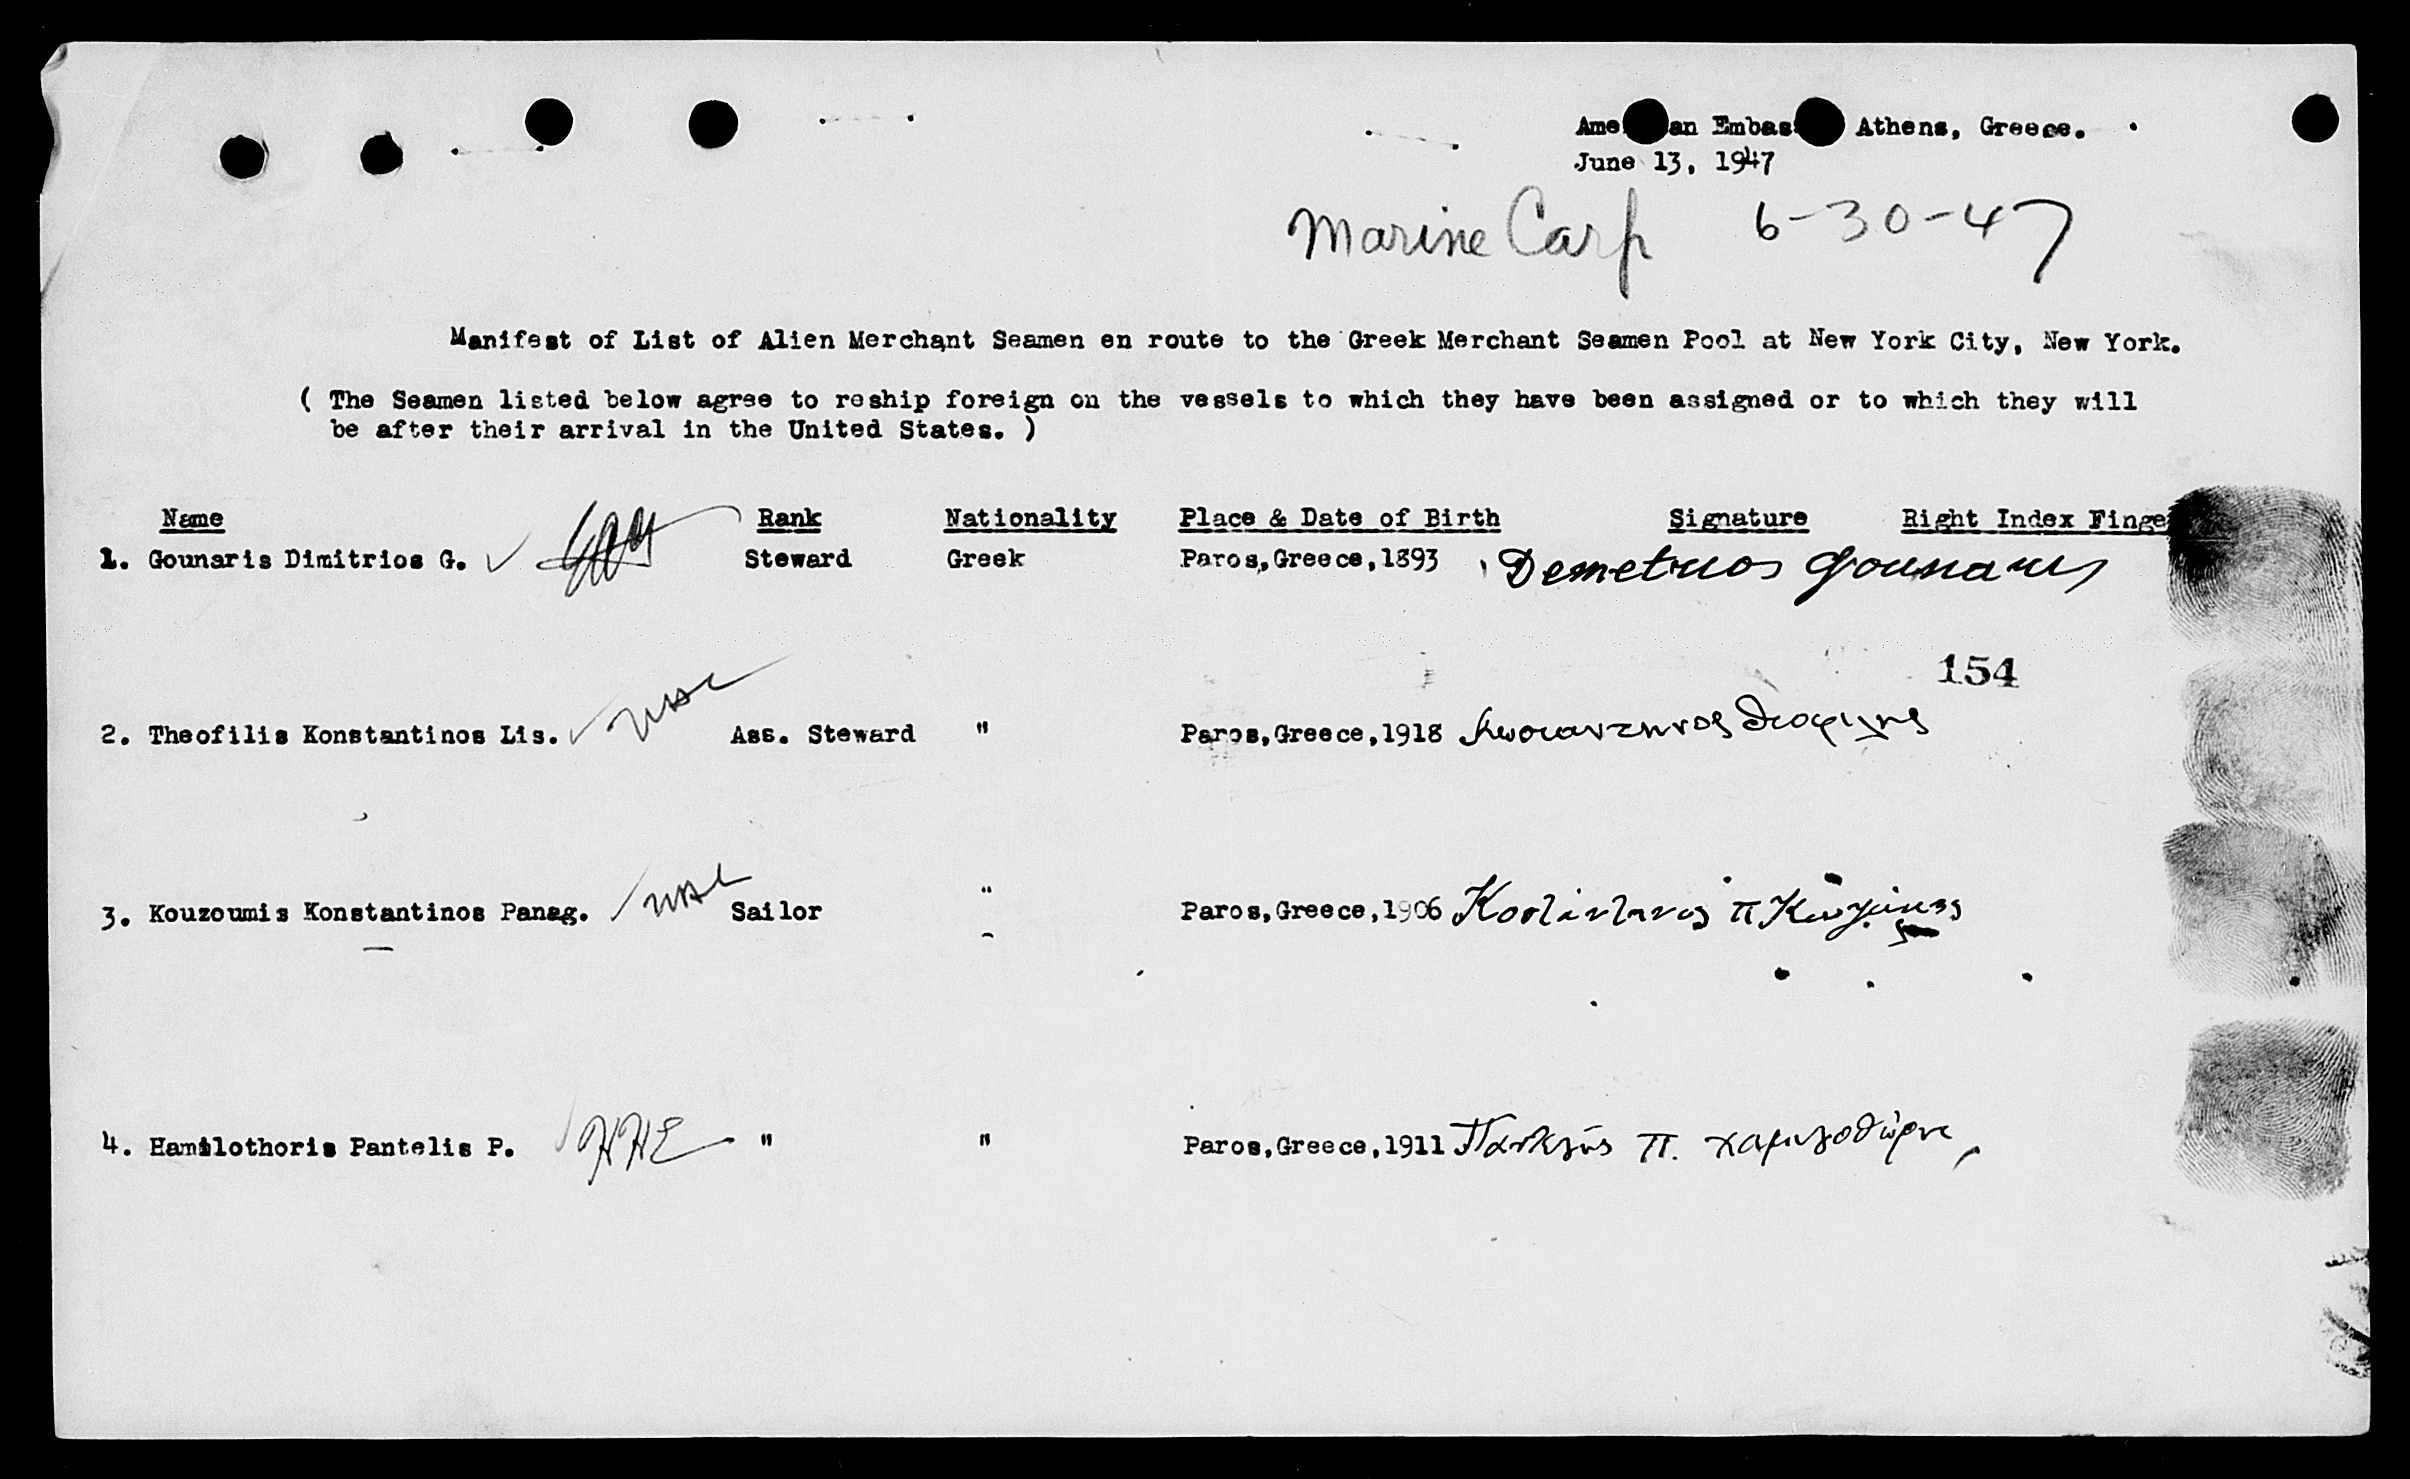 American Embassy Athens, Greece.
June 13, 1947
Marine Carp 6-30-47
Manifest of List of Alien Merchant Seamen en route to the Greek Merchant Seamen Pool at New York City, New York.
( The Seamen listed below agree to reship foreign on the vessels to which they have been assigned or to which they will
be after their arrival in the United States. )
Name Rank Nationality Place & Date of Birth Signature Right Index Finge
1. Gounaris Dimitrios G. Steward Greek Paros,Greece,1893 Demetrios Gounaris
154
2. Theofilis Konstantinos Lis. Ass. Steward " Paros,Greece,1918 Κωσταντηνος Θεοφιλης
3. Kouzoumis Konstantinos Panag. Sailor " Paros,Greece,1906 Κοσταντηνος Π
4. Hamilothoris Pantelis P. " " Paros,Greece,1911 Παντελής Π.